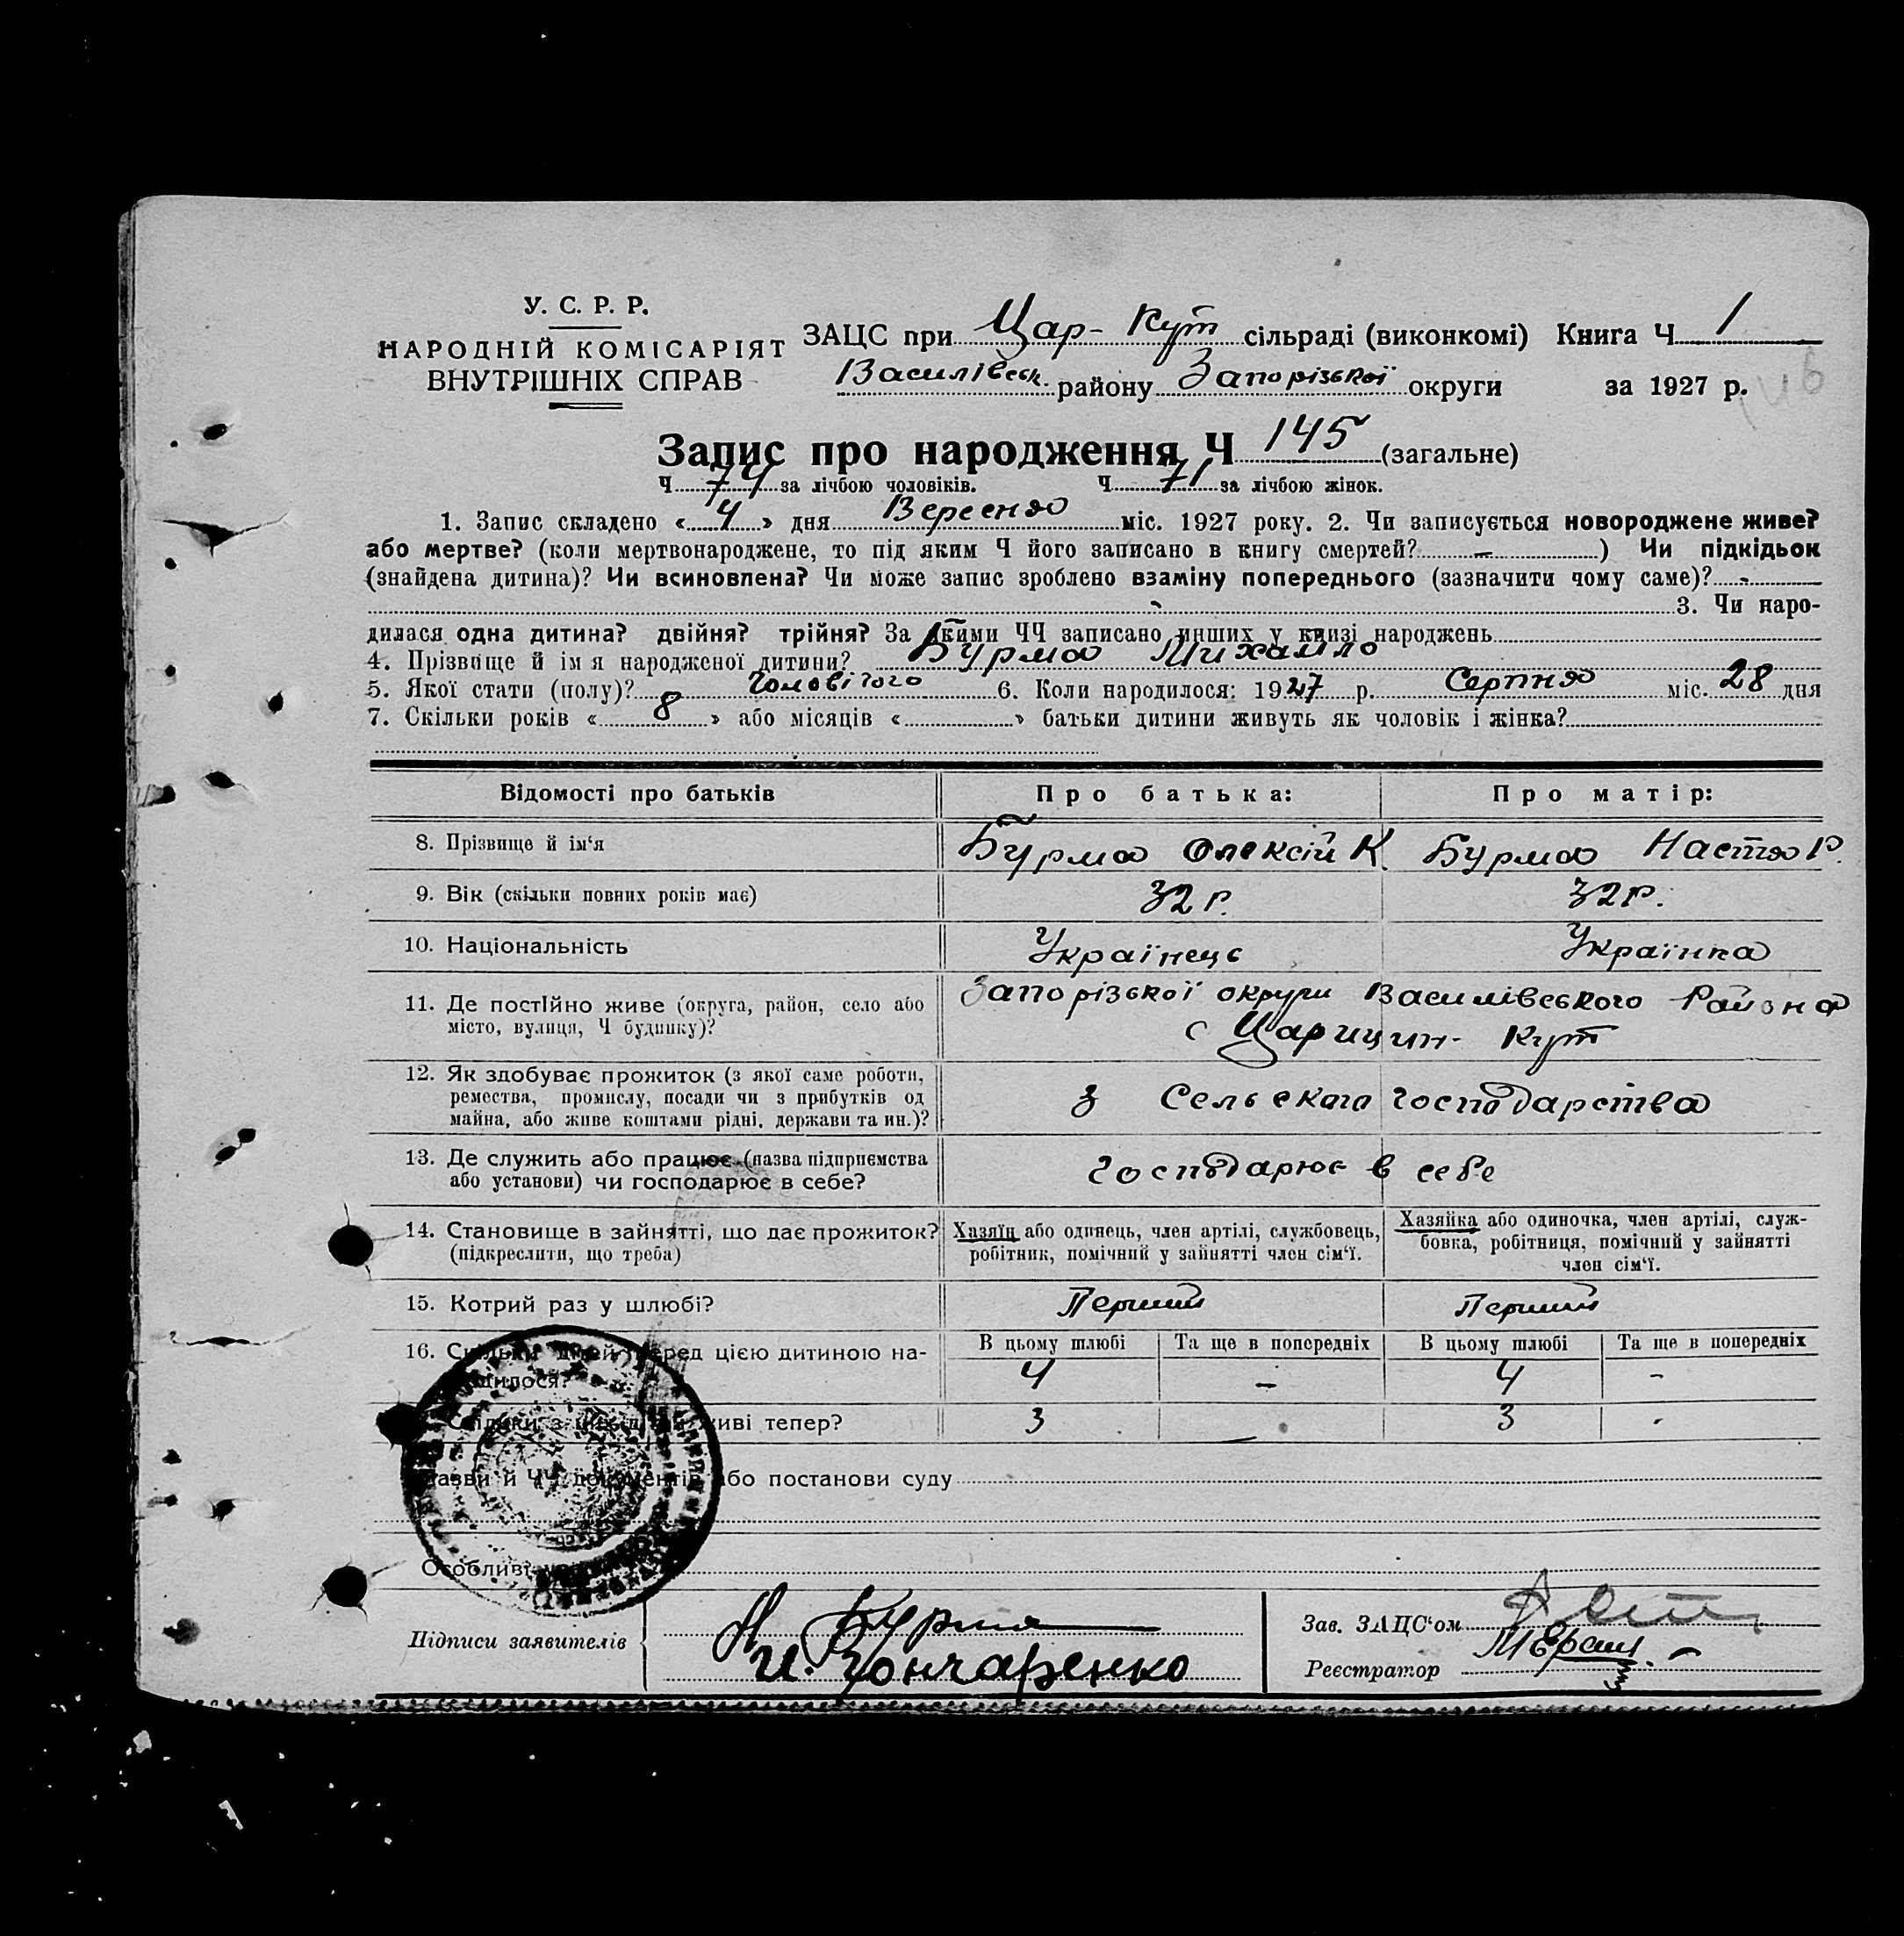 У. С. Р. Р.
НАРОДНІЙ КОМІСАРІЯТ
ВНУТРІШНІХ СПРАВ
ЗАЦС при Цар-Кут сільраді (виконкомі) Книга Ч 1
Василівськ. району Запорізької округи за 1927 р.
Запис про народження Ч 145 (загальне)
Ч 74 за лічбою чоловіків. Ч 71 за лічбою жінок.
1. Запис складено « 4 » дня Вересня міс. 1927 року. 2. Чи записується новороджене живе?
або мертве? (коли мертвонароджене, то під яким Ч його записано в книгу смертей? – ) Чи підкідьок
(знайдена дитина)? Чи всиновлена? Чи може запис зроблено взаміну попереднього (зазначити чому саме)? -
3. Чи наро-
дилася одна дитина? двійня? трійня? За якими ЧЧ записано инших у книзі народжень
4. Прізвище й ім я народженої дитини? Бурма Михайло
5. Якої стати (полу)? Чоловічого 6. Коли народилося: 1927 р. Серпня міс. 28 дня
7. Скільки років « 8 » або місяців « » батьки дитини живуть як чоловік і жінка?
Відомості про батьків Про батька: Про матір:
8. Прізвище й ім'я Бурма Олексій К. Бурма Настя Г.
9. Вік (скільки повних років має) 32 р. 32 р.
10. Національність Українець Українка
11. Де постійно живе (округа, район, село або
місто, вулиця, Ч будинку)?
Запорізької округи Василівського Района
с Царицин-Кут
12. Як здобуває прожиток (з якої саме роботи,
ремества, промислу, посади чи з прибутків од
майна, або живе коштами рідні, держави та ин.)?
З Сельского господарства
13. Де служить або працює (назва підприємства
або установи) чи господарює в себе?
господарює в себе
14. Становище в зайнятті, що дає прожиток?
(підкреслити, що треба)
Хазяїн або одинець, член артілі, службовець,
робітник, помічний у зайнятті член сім'ї.
Хазяйка або одиночка, член артілі, служ-
бовка, робітниця, помічний у зайнятті
член сім'ї.
15. Котрий раз у шлюбі? Перший Перший
16. Скільки дітей перед цією дитиною на-
родилося?
В цьому шлюбі Та ще в попередніх В цьому шлюбі Та ще в попередніх
4 – 4 -
Скільки з них дітей живі тепер? 3 3
Назви й ЧЧ документів або постанови суду
Особливі
Підписи заявителів
Н Бурма
И. Гончаренко
Зав. ЗАЦС'ом
Реєстратор